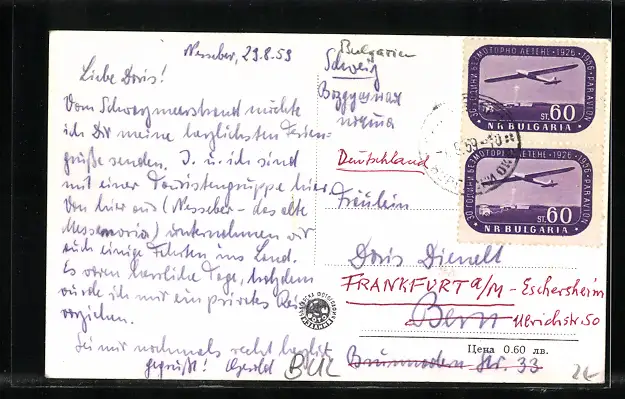 Nesseber, 29.8.59
Liebe Doris!
Vom Schwarzmeerstrand möchte
ich Dir meine herzlichsten Ferien-
grüße senden. I. u. ich sind
mit einer Touristengruppe hier.
Von hier aus (Nesseber - das alte
Messemvria) unternehmen wir
auch einige Fahrten ins Land.
Es waren herrliche Tage, trotzdem
würde ich mir ein privates
vorziehen.
Sei mir nochmals recht herzlich
gegrüßt!
Bulgarien
Schweiz
Воздушная
почта
Deutschland
Fräulein
Doris Dienelt
FRANKFURT a/M - Eschersheim
Bern
Ulrichstr. 50
Цена 0.60 лв.
Brunnaden Str. 33
BUL
30 ГОДИНИ БЕЗМОТОРНО ЛЕТЕНЕ · 1926 · 1956 · PAR AVION
ST. 60
N R BULGARIA
30 ГОДИНИ БЕЗМОТОРНО ЛЕТЕНЕ · 1926 · 1956 · PAR AVION
ST. 60
N R BULGARIA